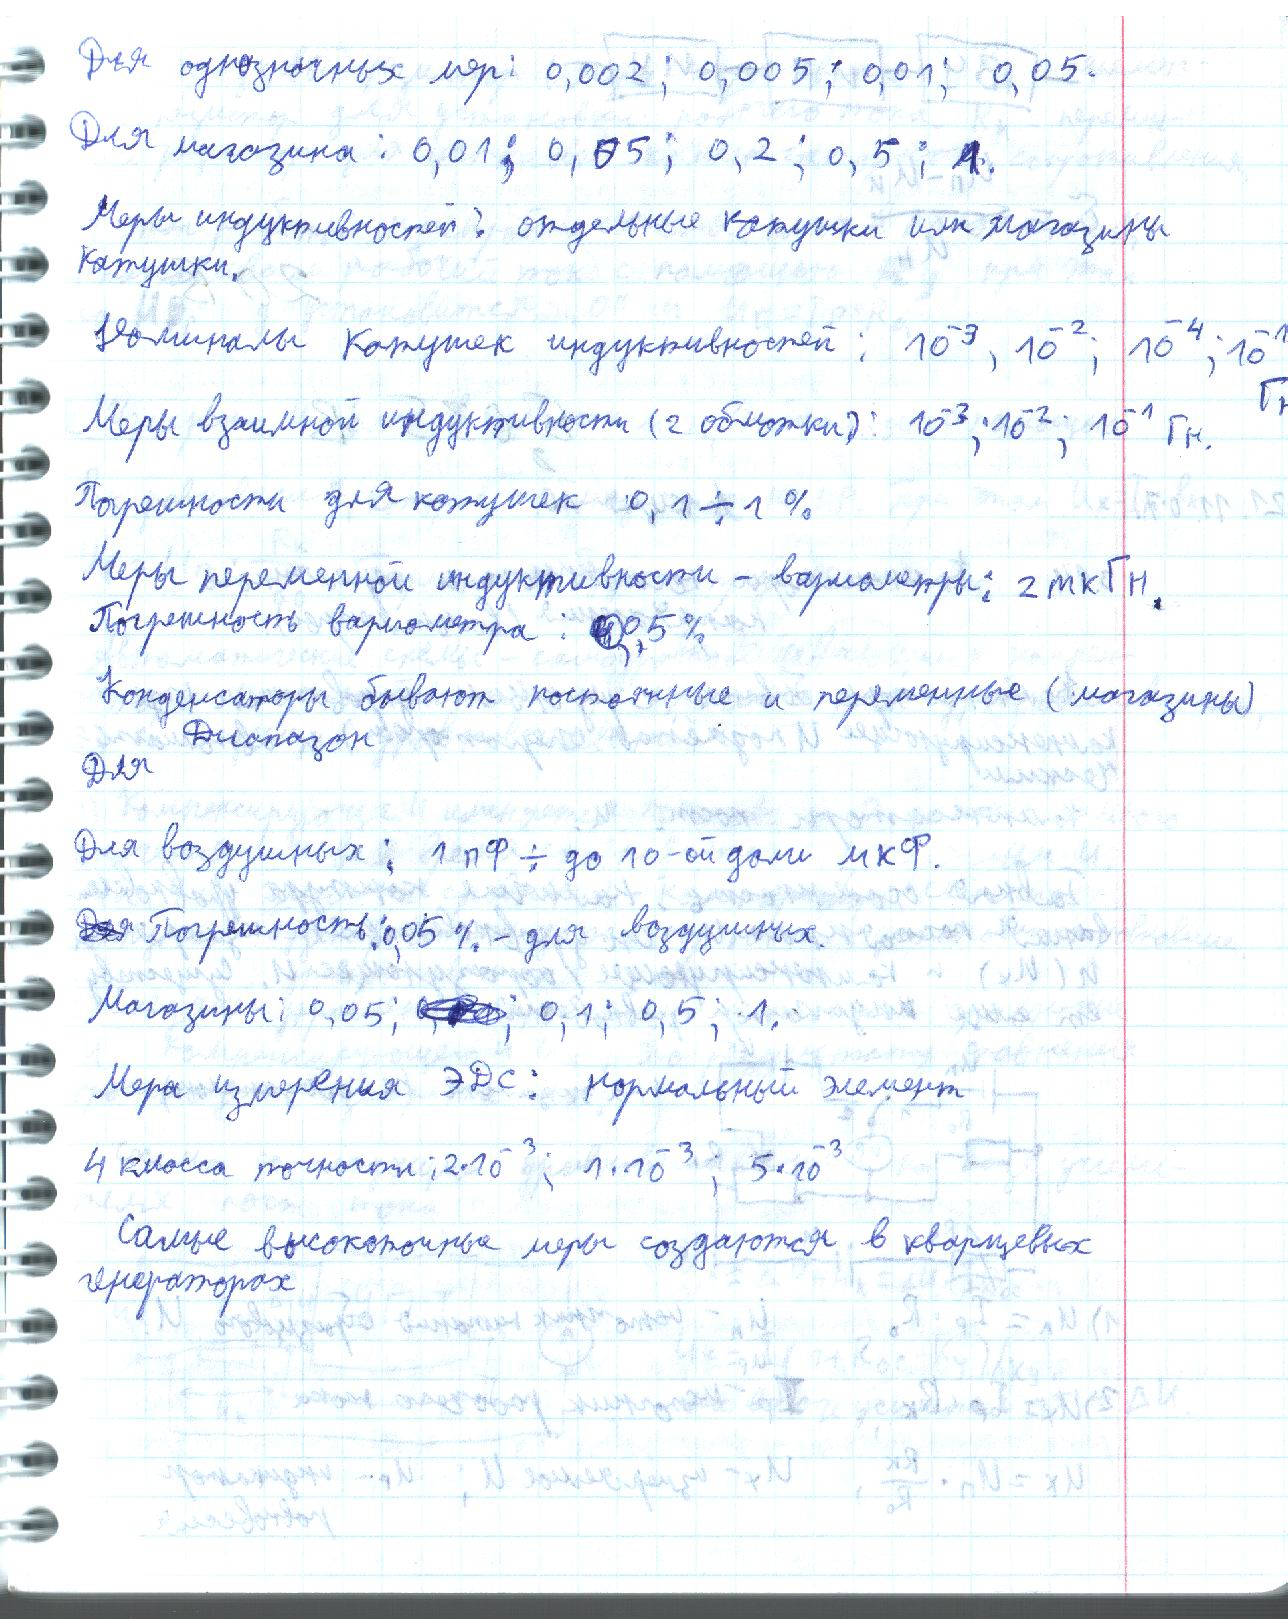 Для однозначных мер: 0,002; 0,005; 0,01; 0,05.
Для магазина: 0,01; 0,05; 0,2; 0,5; 1.
Меры индуктивностей: отдельные катушки или магазины
катушки.
Номиналы катушек индуктивностей: 10⁻³, 10⁻²; 10⁻⁴; 10⁻¹
Гн
Меры взаимной индуктивности (2 обмотки): 10⁻³; 10⁻²; 10⁻¹ Гн.
Погрешности для катушек 0,1÷1%
Меры переменной индуктивности – вариометры: 2 мкГн.
Погрешность вариометра: 0,5%
Конденсаторы бывают постоянные и переменные (магазины)
Диапазон
Для
Для воздушных: 1 пФ ÷ до 10-ой доли мкФ.
Погрешность: 0,05% – для воздушных.
Магазины: 0,05; 0,1; 0,5; 1.
Мера измерения ЭДС: нормальный элемент
4 класса точности: 2·10⁻³; 1·10⁻³; 5·10⁻³
Самые высокоточные меры создаются в кварцевых
генераторах